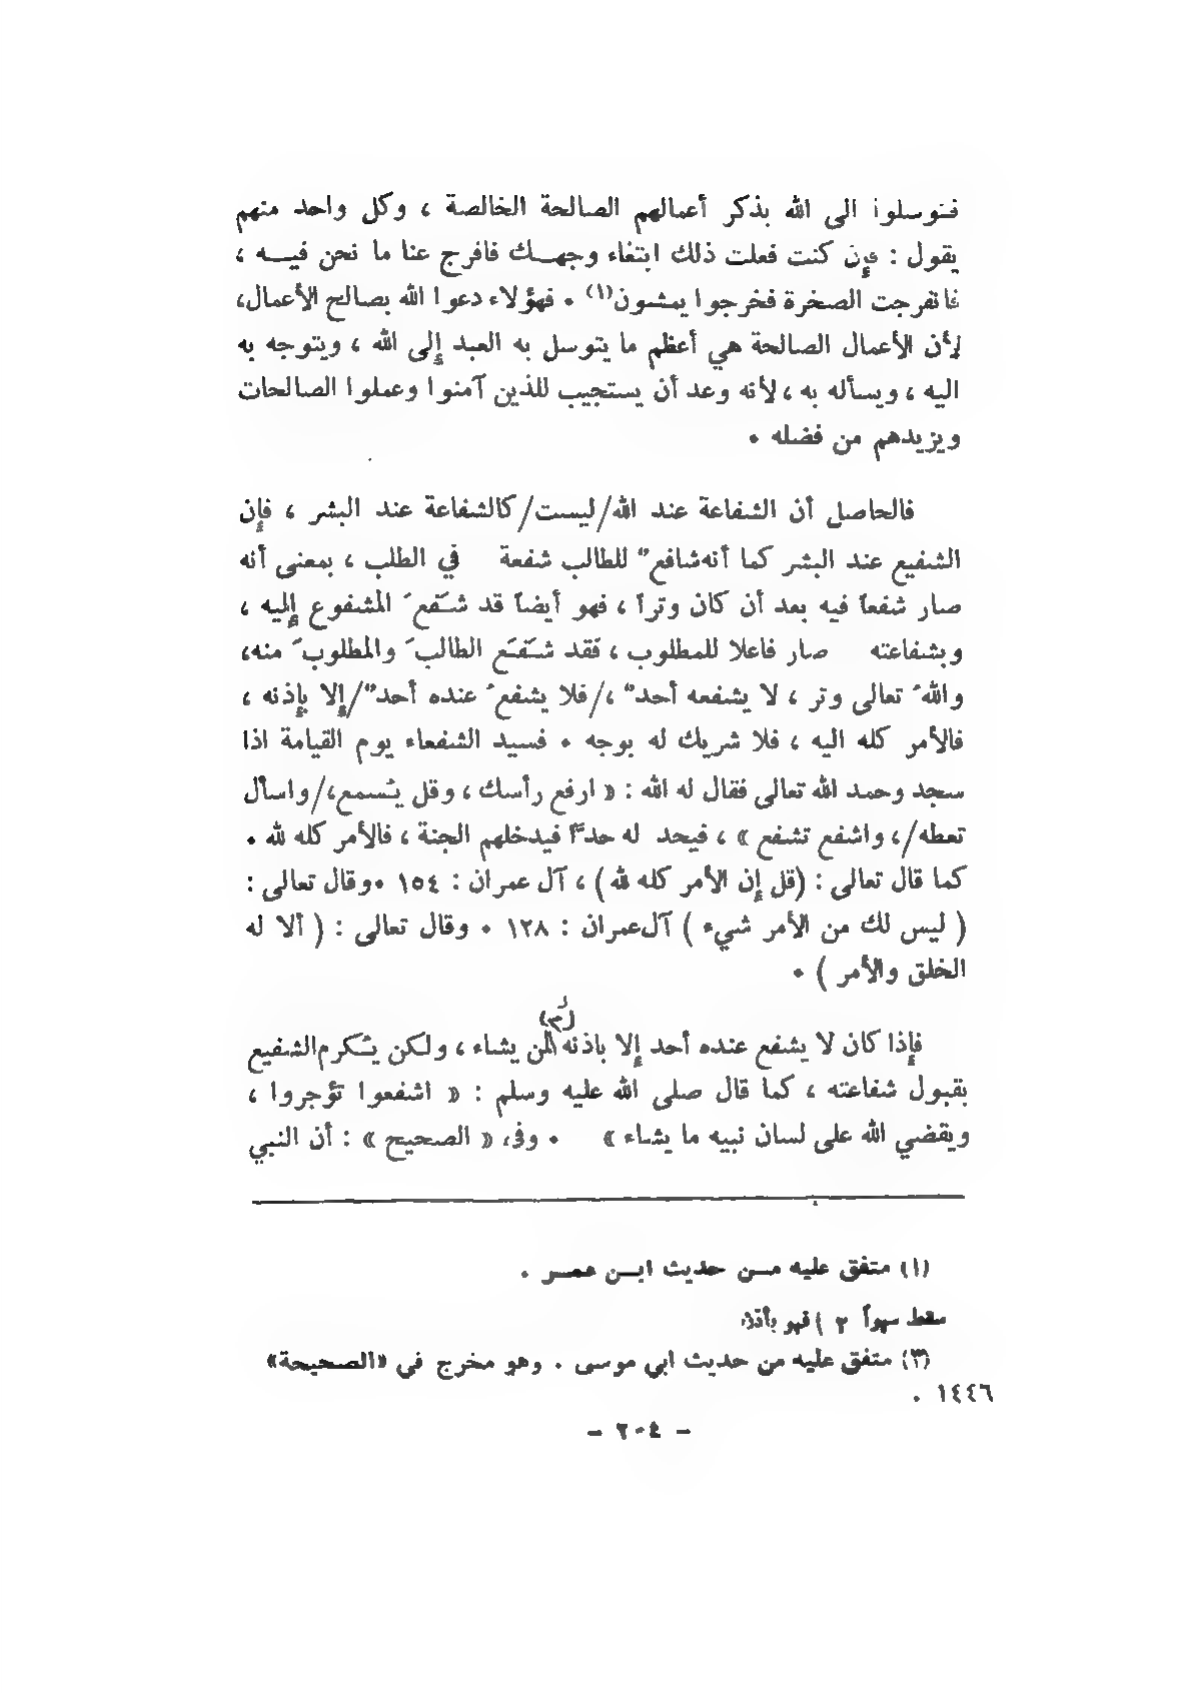 فتوسلوا الى الله بذكر أعمالهم الصالحة الخالصة ، وكل واحد منهم
يقول : فإن كنت فعلت ذلك ابتغاء وجهـــك فافرج عنا ما نحن فيـــه ،
فانفرجت الصخرة فخرجوا يمشون(١) . فهؤلاء دعوا الله بصالح الأعمال،
لأن الأعمال الصالحة هي أعظم ما يتوسل به العبد إلى الله ، ويتوجه به
اليه ، ويسأله به ، لأنه وعد أن يستجيب للذين آمنوا وعملوا الصالحات
ويزيدهم من فضله .
فالحاصل أن الشفاعة عند الله/ليست/كالشفاعة عند البشر ، فإن
الشفيع عند البشر كما أنه شافعٌ للطالب شفعة في الطلب ، بمعنى أنه
صار شفعاً فيه بعد أن كان وتراً ، فهو أيضاً قد شَفَعَ المشفوع إليه ،
وبشفاعته صار فاعلا للمطلوب ، فقد شَفَعَ الطالبَ والمطلوبَ منه،
واللهُ تعالى وتر ، لا يشفعه أحدٌ ،/فلا يشفعُ عنده أحدٌ/إلا بإذنه ،
فالأمر كله اليه ، فلا شريك له بوجه . فسيد الشفعاء يوم القيامة اذا
سجد وحمد الله تعالى فقال له الله : « ارفع رأسك ، وقل يُسمع،/واسأل
تعطه/، واشفع تشفع » ، فيحد له حداً فيدخلهم الجنة ، فالأمر كله لله .
كما قال تعالى : (قل إن الأمر كله لله ) ، آل عمران : ١٥٤ .وقال تعالى :
( ليس لك من الأمر شيء ) آل عمران : ١٢٨ . وقال تعالى : ( ألا له
الخلق والأمر ) .
فإذا كان لا يشفع عنده أحد إلا باذنه لمن يشاء ، ولكن يُكرم الشفيع
بقبول شفاعته ، كما قال صلى الله عليه وسلم : « اشفعوا تؤجروا ،
ويقضي الله على لسان نبيه ما يشاء » . وفي « الصحيح » : أن النبي
(١) متفق عليه مـــن حديث ابـــن عمـــر .
سقط سهواً ٢ ) فهو بأذن
(٣) متفق عليه من حديث ابي موسى . وهو مخرج في «الصحيحة»
١٤٤٦ .
– ٢٠٤ –